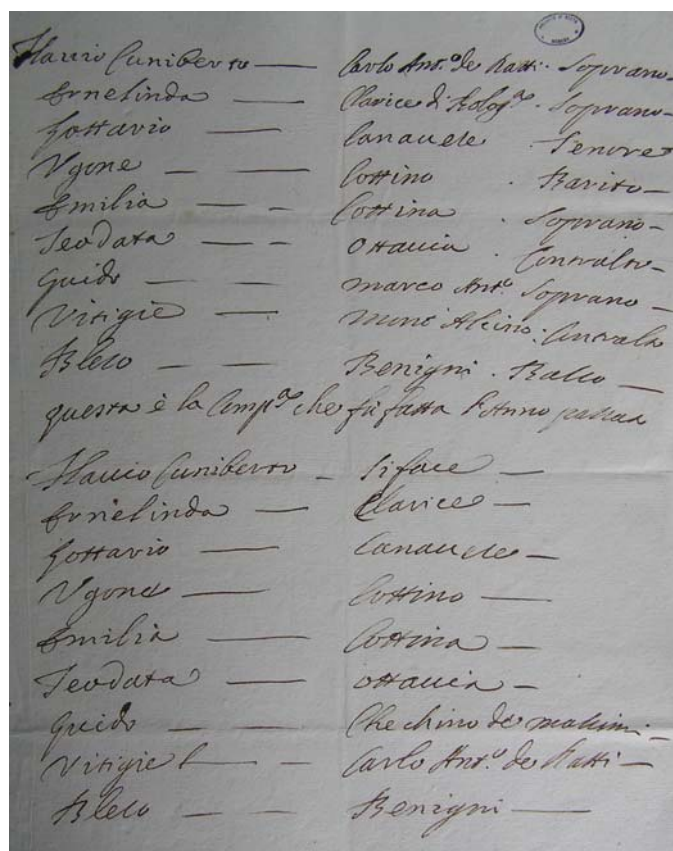 Flavio Cuniberto — Carlo Ant.o de Ratti · Soprano
Ernelinda — Clarice di Bolog.a · Soprano
Gottavio — Canavese · Tenore
Ugone — Cottino · Barito
Emilia — Cottina · Soprano
Teodata — Ottavia · Contralto
Guido — Marco Ant.o Soprano
Vitigie — Alcino · Contralto
Bleso — Benigni · Basso
questa è la Comp.a che fù fatta l'Anno passato
Flavio Cuniberto — Siface
Ernelinda — Clarice
Gottavio — Canavese
Ugone — Cottino
Emilia — Cottina
Teodata — Ottavia
Guido — Checchino de
Vitigie — Carlo Ant.o de Ratti
Bleso — Benigni